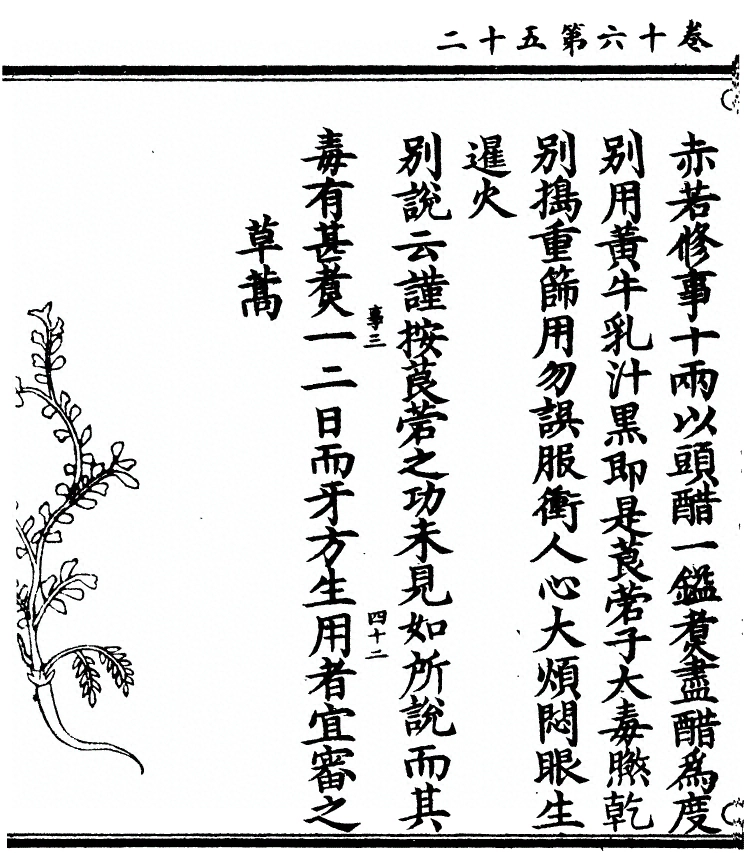 卷十六第五十二
赤若修事十兩以頭醋一鎰煑盡醋爲度
别用黃牛乳汁黒即是莨菪子大毒乾
别搗重篩用勿誤服衝人心大煩悶眼生
暹火
别說云謹按莨菪之功未見如所說而其
事三
四十二
毒有甚煑一二日而牙方生用者宜審之
草蒿